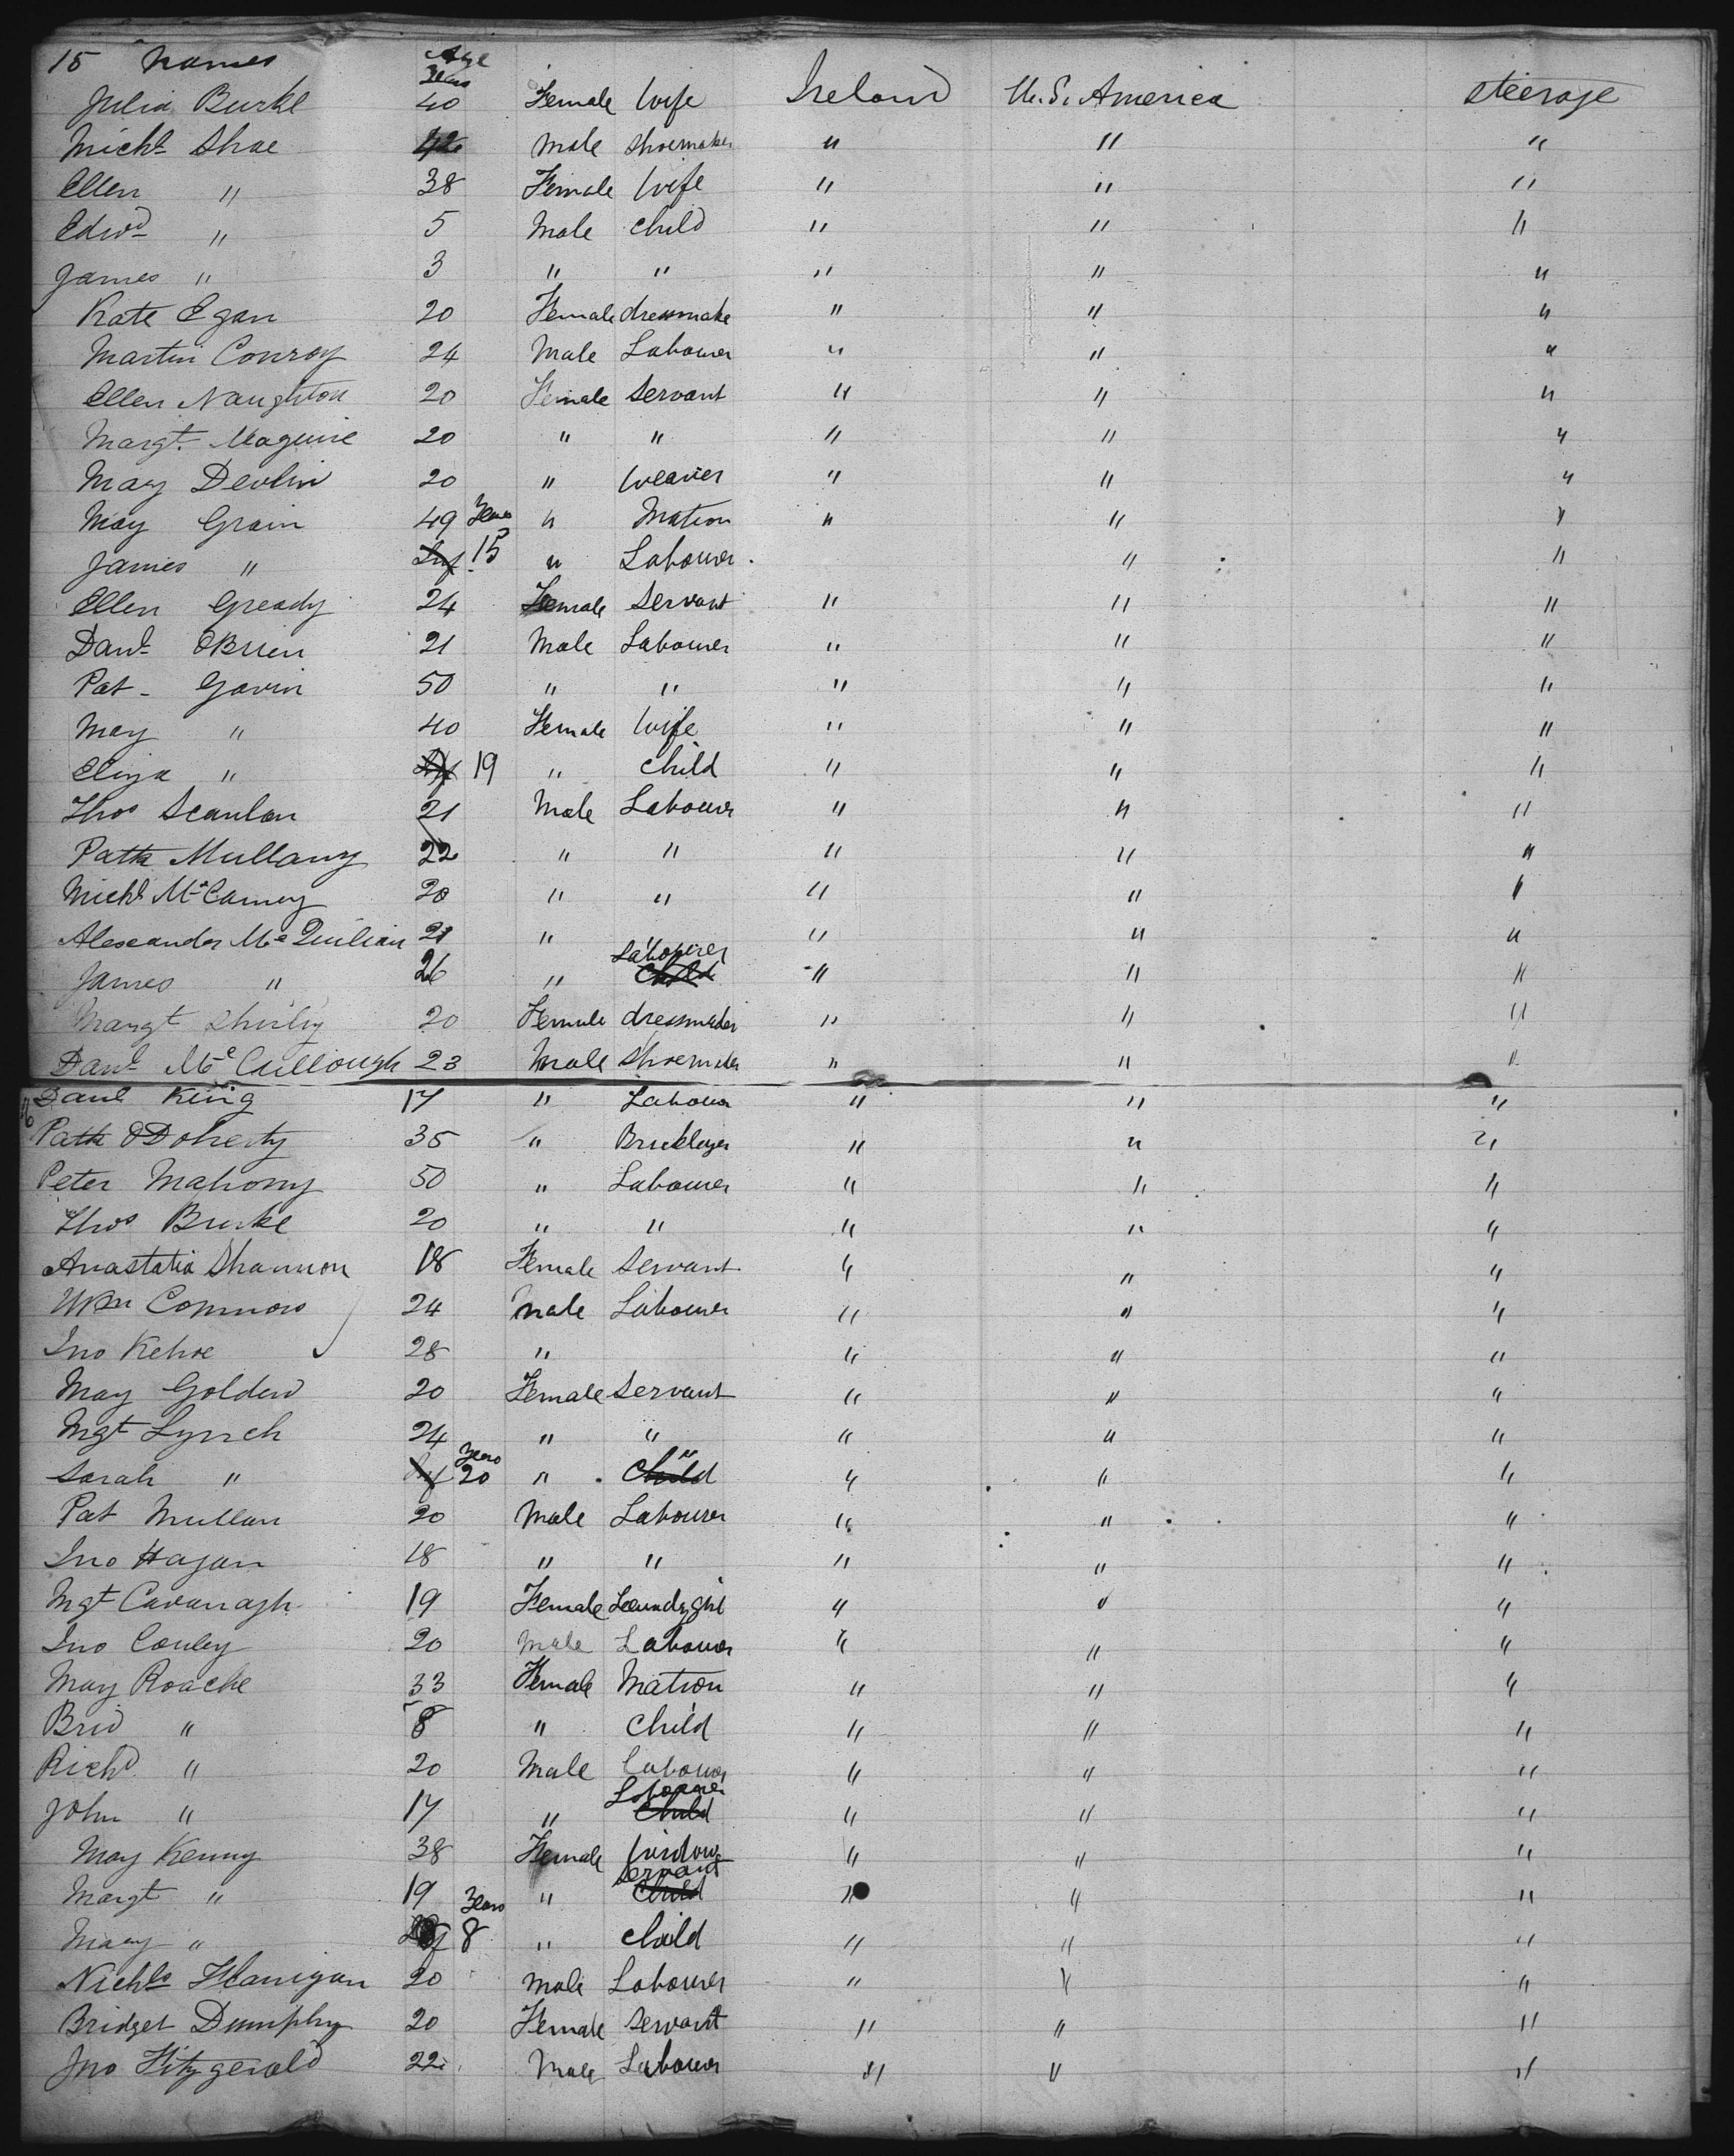 15 Names Age
Years
Julia Burke 40 Female Wife Ireland U.S. America Steerage
Michl Shae 42 Male Shoemaker " " "
Ellen " 38 Female Wife " " "
Edwd " 5 Male Child " " "
James " 3 " " " " "
Kate Egan 20 Female dressmake " " "
Martin Conroy 24 Male Labourer " " "
Ellen Naughton 20 Female Servant " " "
Margt. Maguire 20 " " " " "
Mary Devlin 20 " Weaver " " "
May Grain 49 Years " Matron " " "
James " Inf 15 " Labourer " "
Ellen Gready 24 Female Servant " " "
Danl OBrien 21 Male Labourer " " "
Pat Gavin 50 " " " " "
May " 40 Female Wife " " "
Eliza " Inf 19 " Child " " "
Thos Scanlan 21 Male Labourer " " "
Patk Mullany 22 " " " " "
Michl McCamey 20 " " " " "
Alexander McQuilian 21 " " " "
Labourer
James " 26 " Child " " "
Margt Shirly 20 Female dressmaker " " "
Danl McCullough 23 Male Shoemaker " " "
16
Danl King 17 " Labourer " " "
Patk ODoherty 35 " Bricklayer " " "
Peter Mahony 50 " Labourer " " "
Thos Burke 20 " " " " "
Anastatia Shannon 18 Female Servant " " "
Wm Connors 24 Male Labourer " " "
Jno Kehoe 28 " " " "
May Golden 20 Female Servant " " "
Mgt Lynch 24 " " " " "
Years "
Sarah " Inf 20 " Child " " "
Pat Mullan 20 Male Labourer " " "
Jno Hagan 18 " " " " "
Mgt Cavanagh 19 Female Laundrygirl " " "
Jno Conley 20 Male Labourer " " "
May Roache 33 Female Matron " " "
Brid " 8 " Child " " "
Richd " 20 Male Labourer " " "
Labourer
John " 17 " Child " " "
May Kenny 38 Female Widow " " "
Servant
Margt " 19 " Child " " "
Years
Mary " Inf 8 " Child " " "
Nichls Flanigan 20 Male Labourer " " "
Bridget Dumphy 20 Female Servant " " "
Jno Fitzgerald 22 Male Labourer " " "